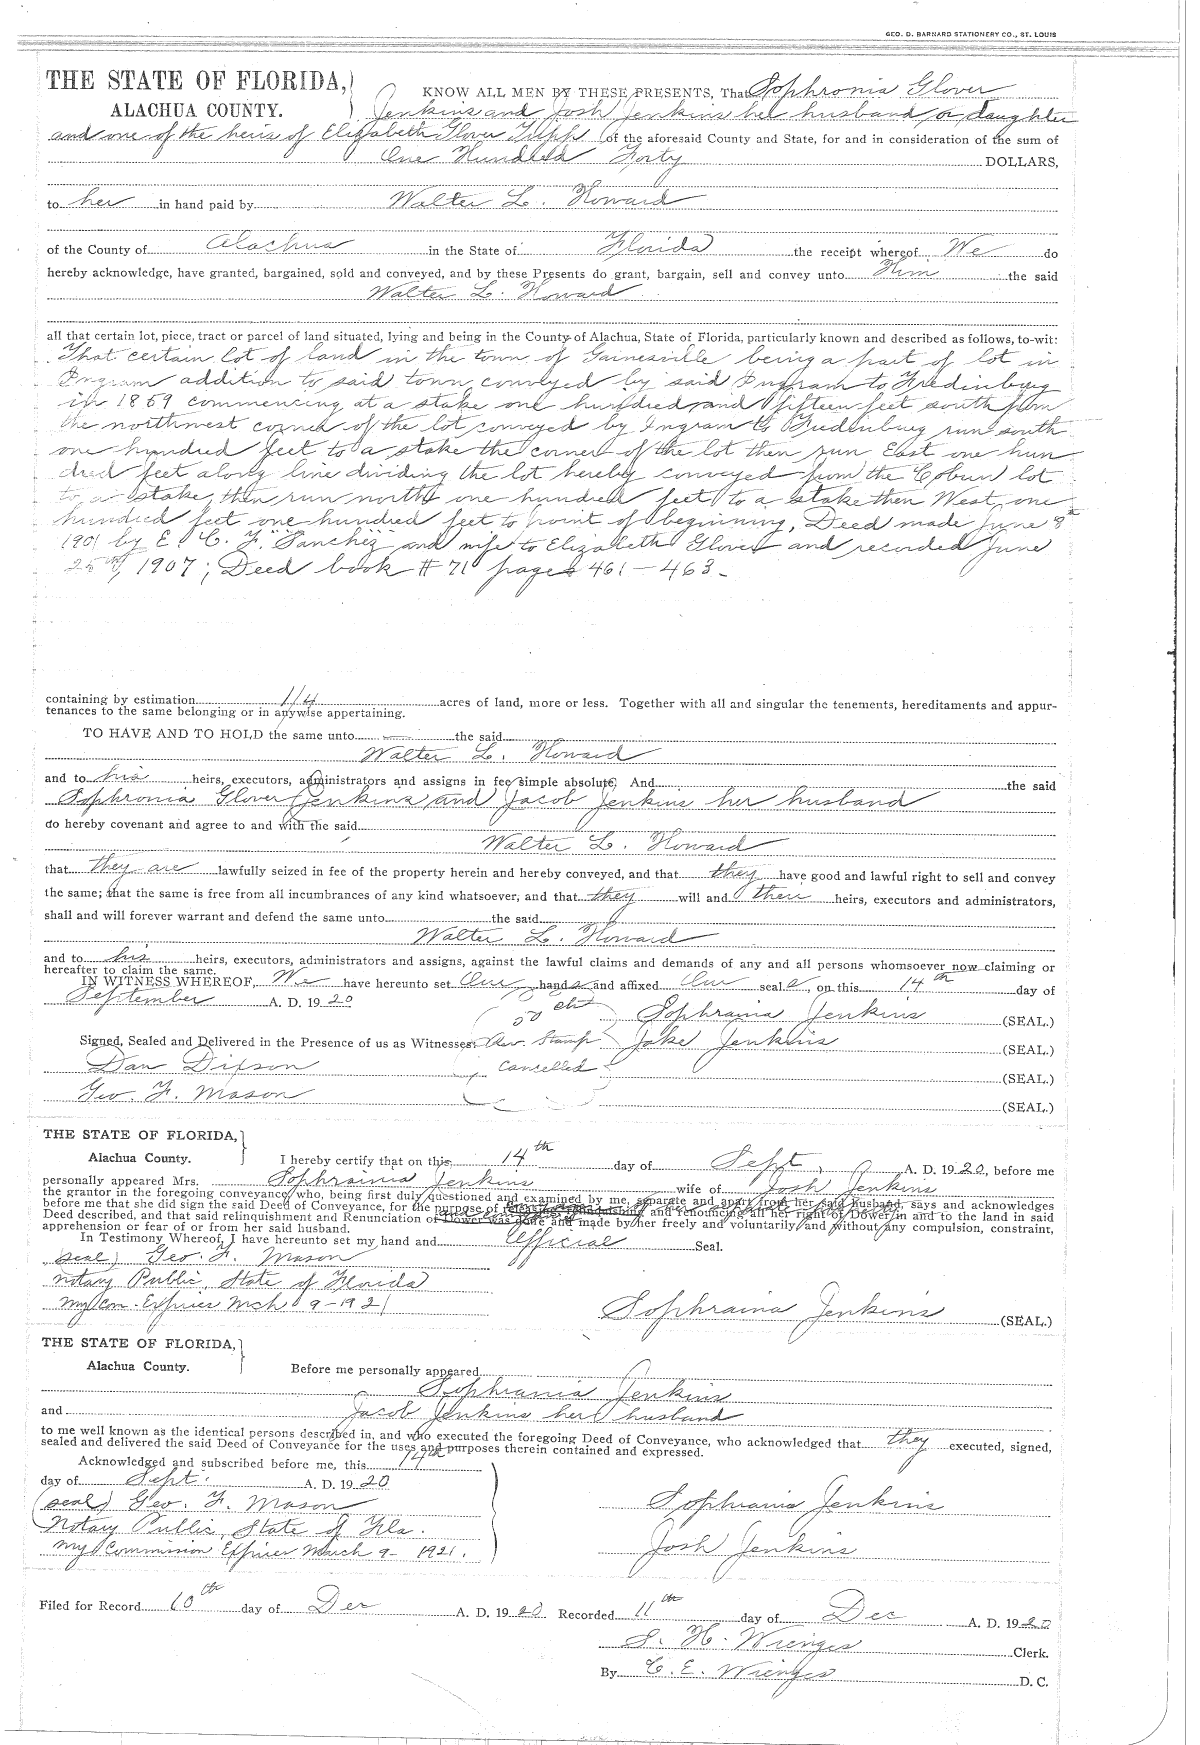 GEO. D. BARNARD STATIONERY CO., ST. LOUIS
THE STATE OF FLORIDA,
ALACHUA COUNTY.
KNOW ALL MEN BY THESE PRESENTS, That Sophronia Glover
Jenkins and Josh Jenkins her husband or daughter
and one of the heirs of Elizabeth Glover Tripp of the aforesaid County and State, for and in consideration of the sum of
One Hundred Forty DOLLARS,
to her in hand paid by Walter L. Howard
of the County of Alachua in the State of Florida the receipt whereof We do
hereby acknowledge, have granted, bargained, sold and conveyed, and by these Presents do grant, bargain, sell and convey unto Him the said
Walter L. Howard
all that certain lot, piece, tract or parcel of land situated, lying and being in the County of Alachua, State of Florida, particularly known and described as follows, to-wit:
That certain lot of land in the town of Gainesville being a part of lot in
Ingram addition to said town conveyed by said Ingram to Fredinburg
in 1869 commencing at a stake one hundred and fifteen feet south from
the northwest corner of the lot conveyed by Ingram to Fudenburg run south
one hundred feet to a stake the corner of the lot then run East one hun
dred feet along line dividing the lot hereby conveyed from the Coburn lot
to a stake, then run north one hundred feet to a stake then West one
hundred feet one hundred feet to point of beginning, Deed made June 8th
1901 by E. C. F. Sanchez and wife to Elizabeth Glover and recorded June
25th, 1907; Deed book # 71 pages 461-463-
containing by estimation 1/4 acres of land, more or less. Together with all and singular the tenements, hereditaments and appur-
tenances to the same belonging or in anywise appertaining.
TO HAVE AND TO HOLD the same unto — the said
Walter L. Howard
and to his heirs, executors, administrators and assigns in fee simple absolute. And the said
Sophronia Glover Jenkins and Jacob Jenkins her husband
do hereby covenant and agree to and with the said
Walter L. Howard
that they are lawfully seized in fee of the property herein and hereby conveyed, and that they have good and lawful right to sell and convey
the same; that the same is free from all incumbrances of any kind whatsoever, and that they will and their heirs, executors and administrators,
shall and will forever warrant and defend the same unto the said
Walter L. Howard
and to his heirs, executors, administrators and assigns, against the lawful claims and demands of any and all persons whomsoever now claiming or
hereafter to claim the same.
IN WITNESS WHEREOF, We have hereunto set Our hands and affixed Our seals, on this 14th day of
September A. D. 1920
50 cts Sophrainia Jenkins (SEAL.)
Signed, Sealed and Delivered in the Presence of us as Witnesses: Rev. Stamp Jake Jenkins (SEAL.)
Dan Dixson Cancelled (SEAL.)
Geo. F. Mason (SEAL.)
THE STATE OF FLORIDA,
Alachua County.
I hereby certify that on this 14th day of Sept, A. D. 1920, before me
personally appeared Mrs. Sophrainia Jenkins wife of Josh Jenkins
the grantor in the foregoing conveyance, who, being first duly questioned and examined by me, separate and apart from her said husband, says and acknowledges
before me that she did sign the said Deed of Conveyance, for the purpose of releasing, relinquishing and renouncing all her right of Dower in and to the land in said
Deed described, and that said relinquishment and Renunciation of Dower was done and made by her freely and voluntarily, and without any compulsion, constraint,
apprehension or fear of or from her said husband.
In Testimony Whereof, I have hereunto set my hand and Official Seal.
(seal) Geo. F. Mason
Notary Public, State of Florida
my Com. Expires Mch 9-1921
Sophrainia Jenkins (SEAL.)
THE STATE OF FLORIDA,
Alachua County.
Before me personally appeared
Sophrania Jenkins
and Jacob Jenkins her husband
to me well known as the identical persons described in, and who executed the foregoing Deed of Conveyance, who acknowledged that they executed, signed,
sealed and delivered the said Deed of Conveyance for the uses and purposes therein contained and expressed.
Acknowledged and subscribed before me, this 14th
day of Sept. A. D. 1920
(seal) Geo. F. Mason
Notary Public, State of Fla.
my Commission Expires March 9- 1921.
Sophrainia Jenkins
Josh Jenkins
Filed for Record 10th day of Dec A. D. 1920 Recorded 11th day of Dec A. D. 1920
S. H. Wienges Clerk.
By C. E. Wienges D. C.